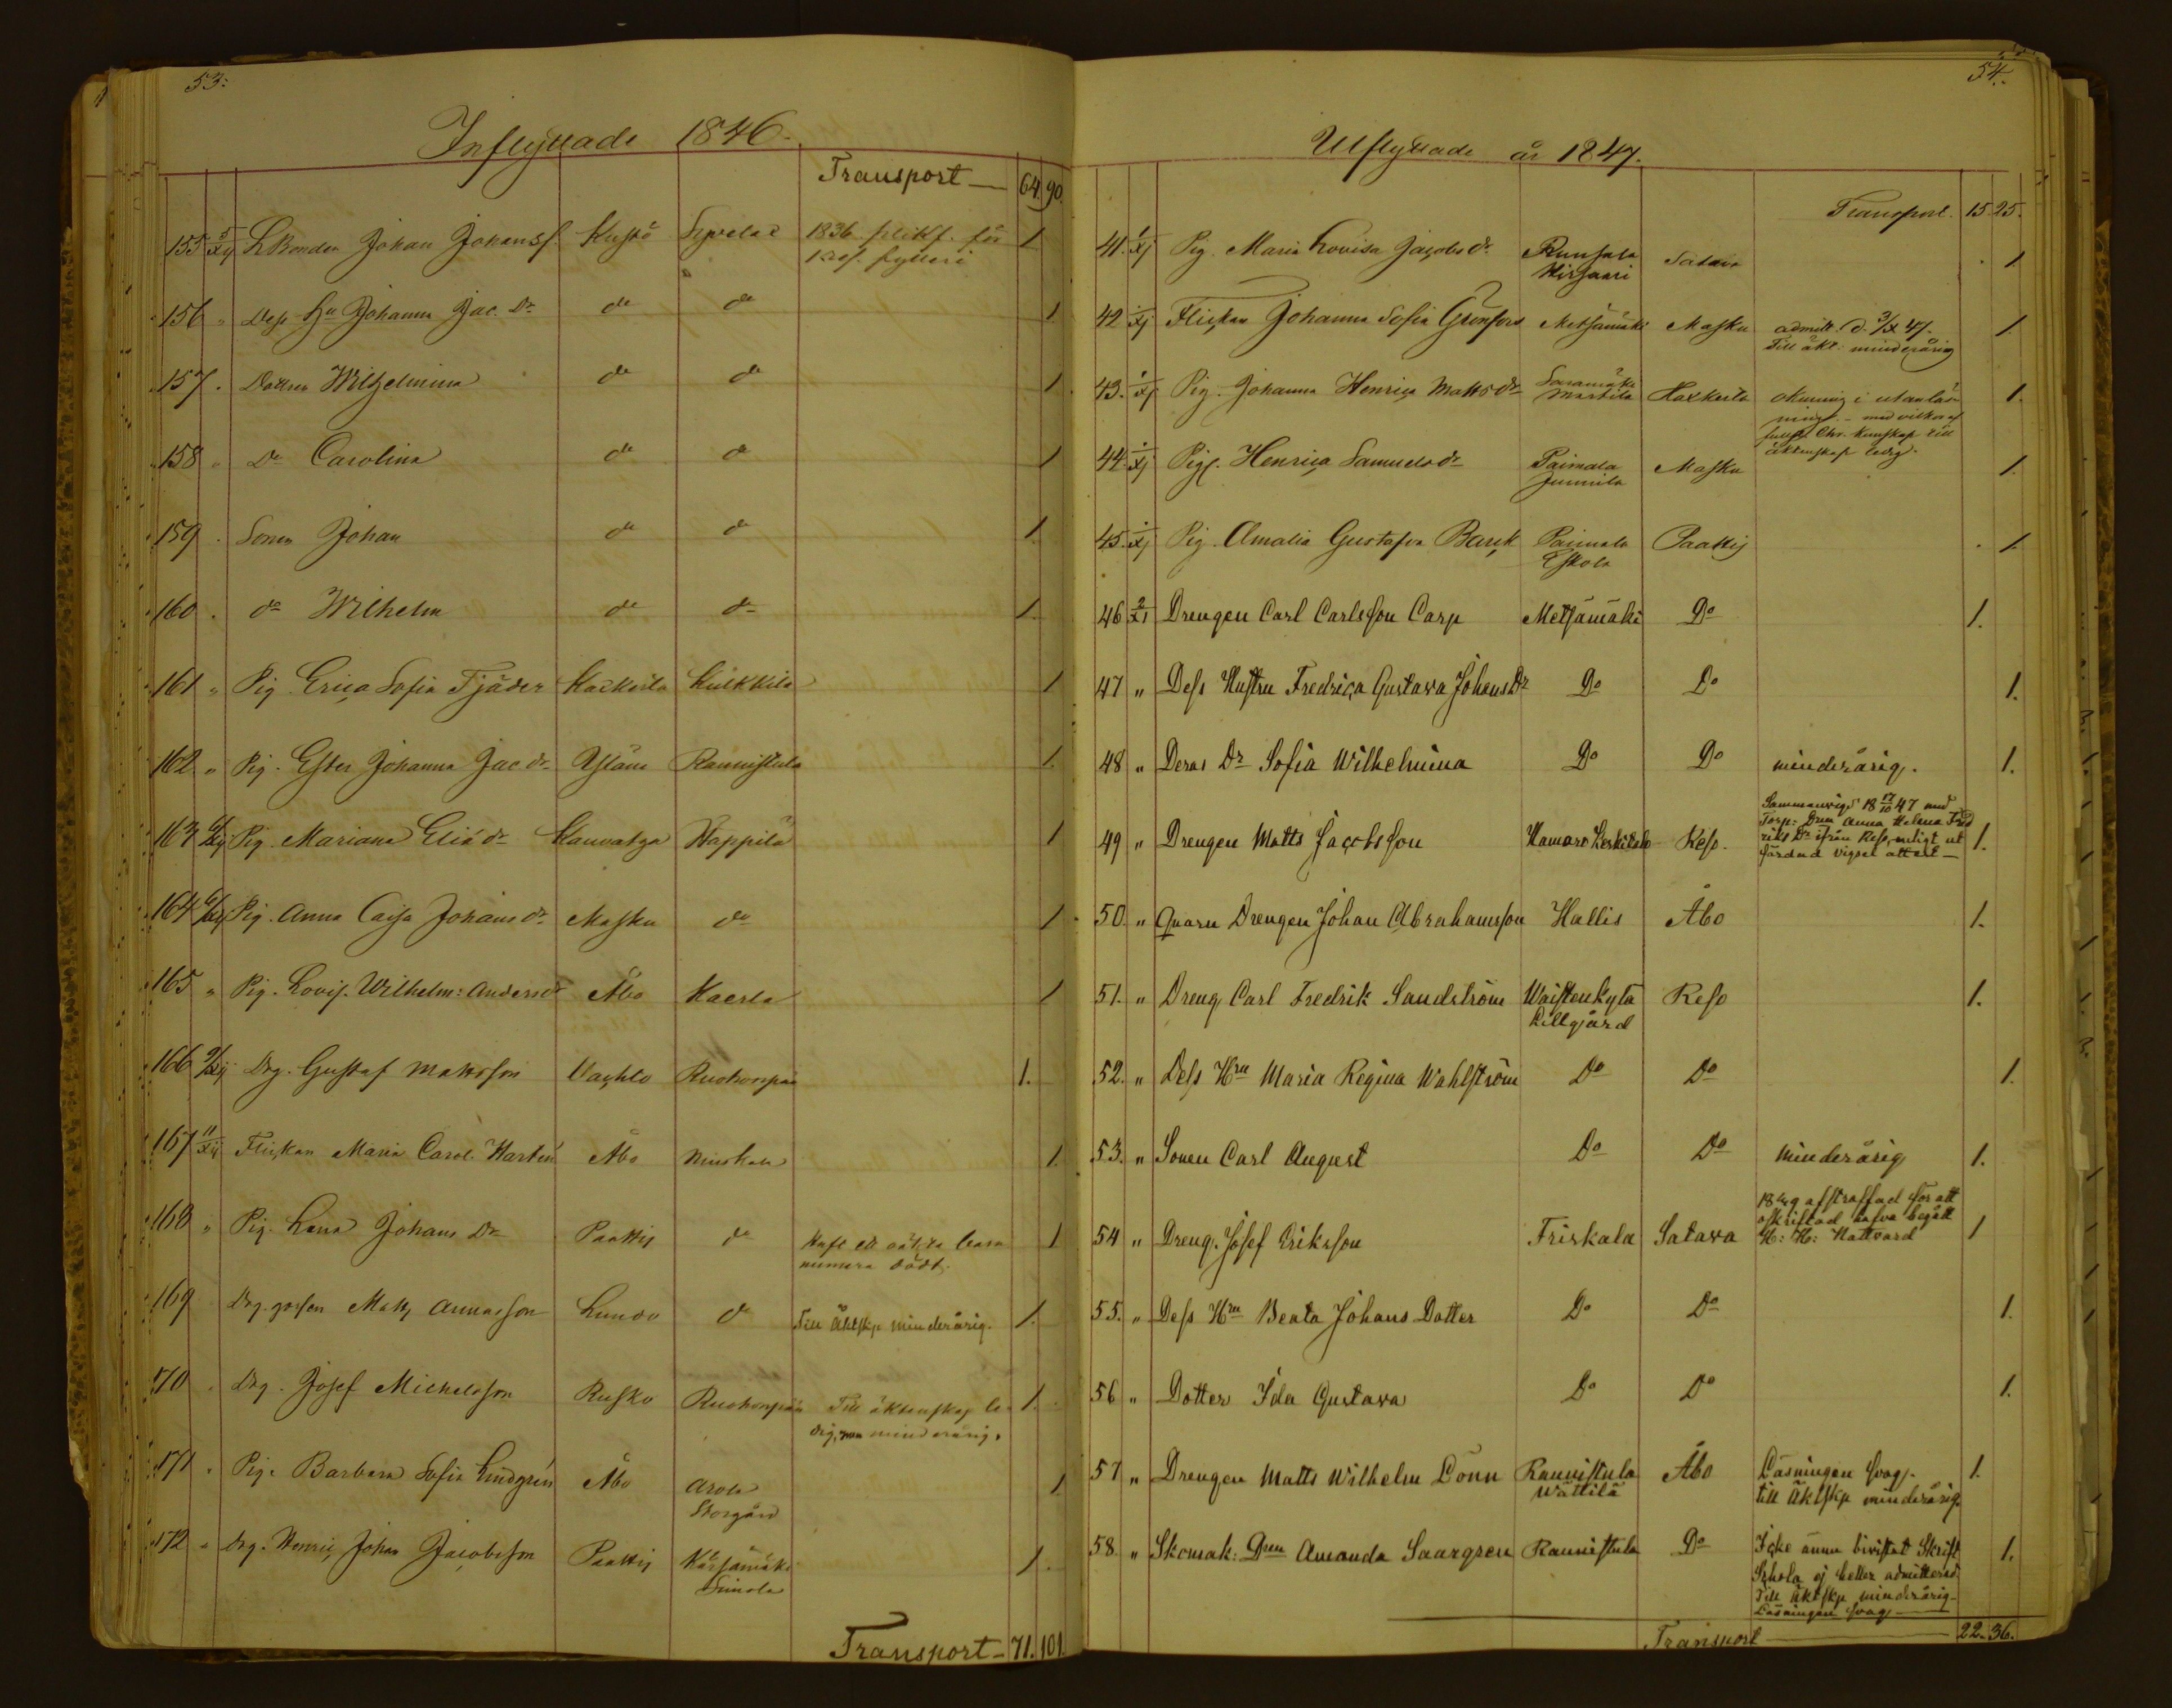 53:
Inflyttade 1846.
Transport — 64. 90.
155 5/XII LBonden Johan Johanss. Kustö 1836 plikt. för 1
fylleri
156 " Dess Hu Johanna Jac. Dr do do 1
157 . Dottren Wilhelmina do do 1
158 " Do Carolina do do 1
159 . Sonen Johan do do 1
160 . do Wilhelm do do 1.
161 " Pig. Erica Sofia Fjäder Kackerta Kulkkila 1
162 " Pig. Ester Johanna Jac dr Yläne Raunistula 1.
163 Pig. Mariana Eliæ dr Kauvatza Happila 1
164 Pig. Anna Caisa Johans dr Masku do 1
165 " Pig. Lovis. Wilhelm: Anders dr Åbo Kaerla 1
166 9/XII Drg. Gustaf Matsson Vachto Ruohonpää 1.
167 11/XII Flickan Maria Carol. Hartin Åbo Muskala 1.
168 " Pig. Lena Johans Dr Paattis do Haft ett oäkta barn 1
numera dödt.
169 Drg. gossen Matts Annasson Lundo do Till Äktskp minderårig. 1.
170 . Drg. Josef Michelsson Rusko Ruohonpää Till äktenskap le- 1.
dig, minderårig.
171 . Pig. Barbara Sofia Lindgrén Åbo Arola 1
Storgård
172 " Drg. Henric Johan Jacobsson Paattis Kärsämäki 1.
Simola
Transport — 71. 101.
54.
Utflyttade år 1847.
Transport. 15 25.
41. 1/XI Pig. Maria Lovisa Jacobs dr Runsala Satava 1
Hirsaari
42 1/XI Flickan Johanna Sofia Grönfors Metsämäki Masku admitt. d. 3/X 47. 1.
Till äkt. minderårig
43. 1/XI Pig. Johanna Henrica Matts dr Saramäki Kackerta okunnig i utanläs- 1.
Marttila ning - med vilkor af
Chr. Kunskap till
44. 1/XI Pig. Henrica Samuels dr Paimala Masku äktenskap ledig. 1.
Junnila
45. 1/XI Pig. Amalia Gustafva Barck Paimala Paattis 1.
Eskola
46 2/XI Drengen Carl Carlsson Carp Metsämäki Do 1.
47 " Dess Hustru Fredrica Gustava Johans Dr Do Do 1.
48 " Deras Dr Sofia Wilhelmina Do Do minderårig. 1.
Sammanvigd 18 17/10 47 med
Torp: Drn Anna Helena Fred
49 " Drengen Matts Jacobsson Hamaro Keskitalo Reso. riks Dr ifrån Reso, enligt ut 1.
färdad vigsel attest —
50. " Qvarn Drengen Johan Abrahamsson Hallis Åbo 1.
51. " Dreng Carl Fredrik Sandström Waistenkylä Reso 1.
Lillgård
52. " Dess Hru Maria Regina Wahlström Do Do 1.
53. " Sonen Carl August Do Do minderårig 1.
afstraffad för att
oskriftad hafva begått
54 " Dreng. Josef Eriksson Friskala Satava H: H: Nattvard 1
55. " Dess Hru Beata Johans Dotter Do Do 1.
56 " Dotter Ida Gustava Do Do 1.
57 " Drengen Matts Wilhelm Lönn Raunistula Åbo Läsningen svag. 1.
Wättilä till Äktskp minderårig.
58. " Skomak: Drn Amanda Saargren Raunistula Do Icke ännu bivistat Skrift 1.
Skola ej heller admitterad
Till Äktskp minderårig-
Läsningen svag —
Transport — 22. 36.